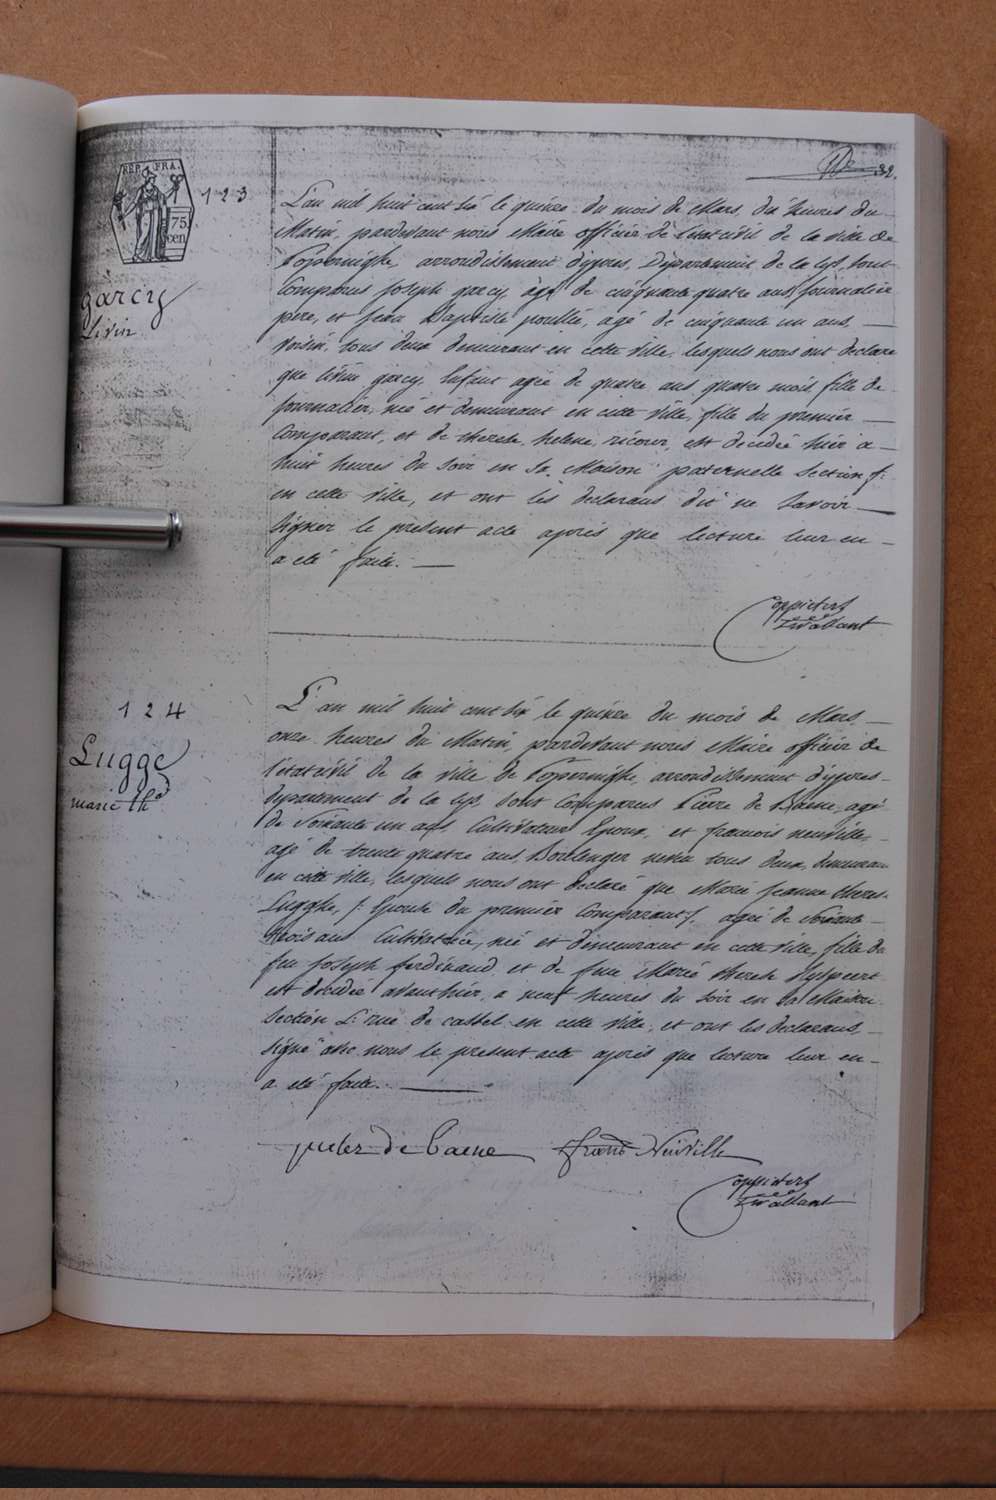 32.
REP. FRA.
75
cen
123
garcy
Livin
L'an mil huit cent dix le quinze du mois de Mars, dix heures du
Matin, pardevant nous Maire officier de l'état civil de la ville de
Poperinghe, arrondissement d'ypres, Département de la Lys, sont
Comparus Joseph garcy, âgé de cinquante quatre ans, Journalier
père, et Jean Baptiste poullé, agé de cinquante un ans,
voisin, tous deux demeurant en cette ville, lesquels nous ont declaré
que livin garcy, Enfant agée de quatre ans quatre mois, fille de
journalier, née et demeurant en cette ville, fille du premier
Comparant, et de therese helene ricour, est decedée hier a
huit heures du soir en sa Maison paternelle section f:
en cette ville, et ont les declarans dit ne savoir
signer le present acte après que lecture leur en
a été faite.
Coppieters
T'wallant
124
Lugge
marie th.e
L'an mil huit cent dix le quinze du mois de Mars
onze heures du Matin, pardevant nous Maire officier de
l'état civil de la ville de Poperinghe, arrondissement d'ypres
département de la Lys, sont Comparus Pierre de Baene, agé
de Soixante un ans, Cultivateur Epoux, et francois neuville,
agé de trente quatre ans, Boulenger neveu tous deux demeurant
en cette ville, lesquels nous ont declaré que Marie Jeanne theres.
Lugghe, /: Epouse du premier Comparant /, agée de Soixante
trois ans Cultivatrice, née et demeurant en cette ville, fille de
feu Joseph ferdinand et de feue Marie therese
est decedée avant hier, a neuf heures du soir en sa Maison
Section L: rue de cassel en cette ville, et ont les declarans,
signé avec nous le present acte après que lecture leur en
a été faite.
pieter de baene frans Neuville
Coppieters
T'wallant